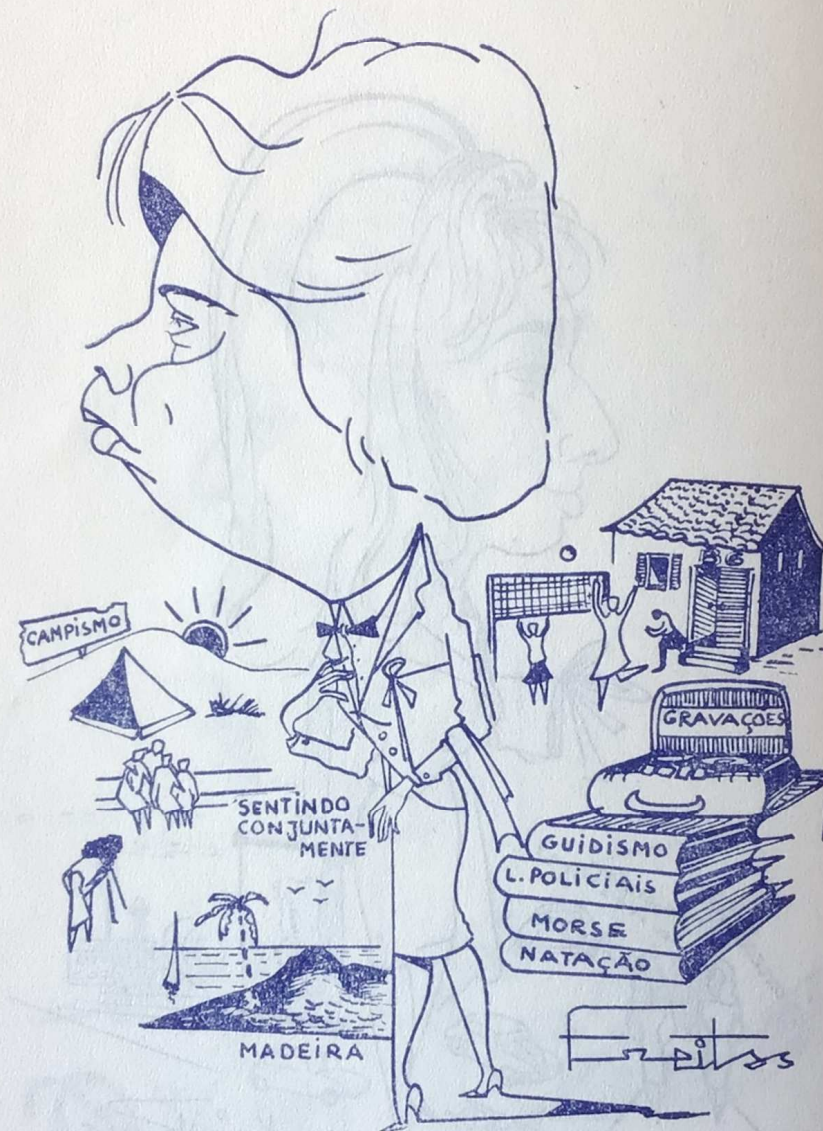 CAMPISMO
GRAVAÇOES
SENTINDO
CONJUNTA-
MENTE
GUIDISMO
L. POLICIAIS
MORSE
NATAÇÃO
MADEIRA
Freitas